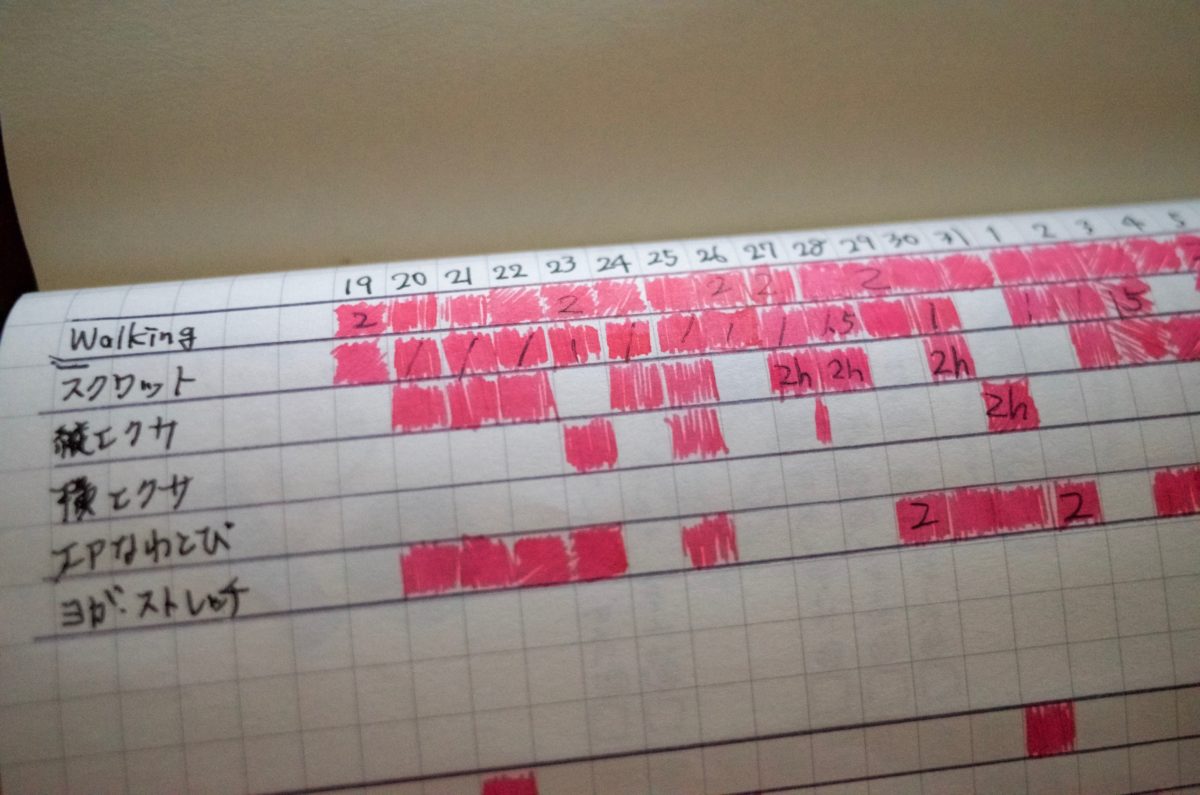 19 20 21 22 23 24 25 26 27 28 29 30 31 1 2 3 4 5
Walking 2 2 2 2 2
スクワット / / / 1 / / 1 / 1.5 1 1 1 1.5
縦エクサ 2h 2h 2h
横エクサ 2h
エアなわとび
ヨガ・ストレッチ 2 2